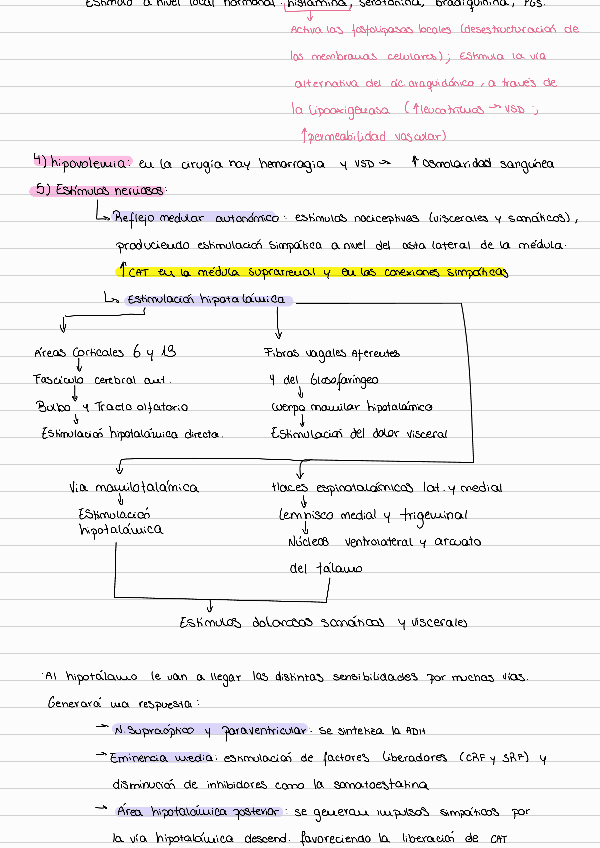 Estímulo a nivel local hormonal: histamina, serotonina, bradiquinina, PGs.
Activa las fosfolipasas locales (desestructuración de
las membranas celulares); Estimula la vía
alternativa del ác. araquidónico, a través de
la lipooxigenasa (↑leucotrienos → VSD;
↑permeabilidad vascular)
4) hipovolemia: en la cirugía hay hemorragia y VSD → ↑ Osmolaridad sanguínea
5) Estímulos nerviosos:
Reflejo medular autonómico: estímulos nociceptivos (viscerales y somáticos),
produciendo estimulación simpática a nivel del asta lateral de la médula.
↑CAT en la médula suprarrenal y en las conexiones simpáticas
Estimulación hipotalámica
Áreas Corticales 6 y 13
Fascículo cerebral ant.
Bulbo y Tracto olfatorio
Estimulación hipotalámica directa.
Fibras vagales Aferentes
y del Glosofaríngeo
cuerpo mamilar hipotalámico
Estimulación del dolor visceral
Vía mamilotalámica
Estimulación
hipotalámica
Haces espinotalámicos lat. y medial
Lemnisco medial y trigeminal
Núcleos ventrolateral y arcuato
del tálamo
Estímulos dolorosos somáticos y viscerales
·Al hipotálamo le van a llegar las distintas sensibilidades por muchas vías.
Generará una respuesta:
→ N. Supraóptico y paraventricular: se sintetiza la ADH
→ Eminencia media: estimulación de factores liberadores (CRF y SRF) y
disminución de inhibidores como la somatostatina
→ Área hipotalámica posterior: se generan impulsos simpáticos por
la vía hipotalámica descend. favoreciendo la liberación de CAT